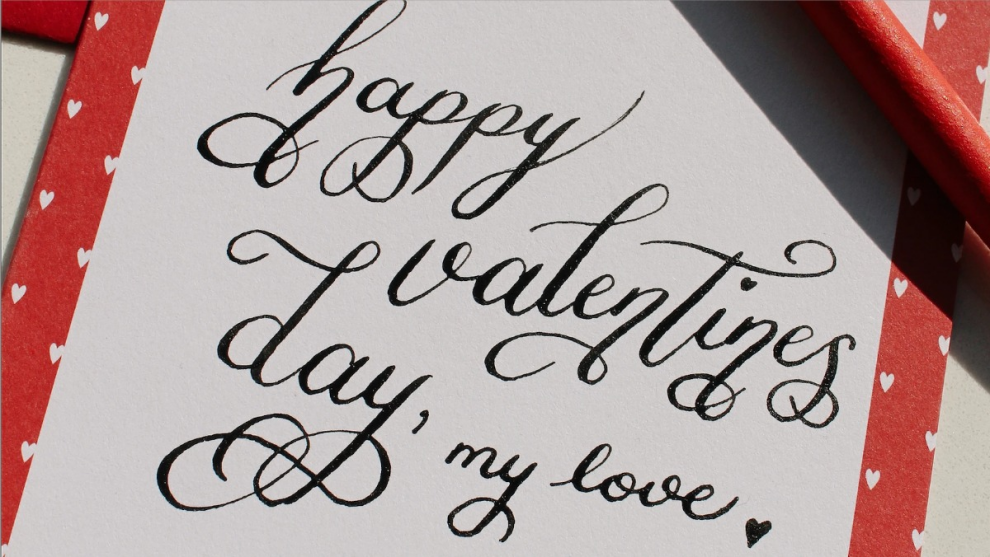 happy
valentines
day, my love